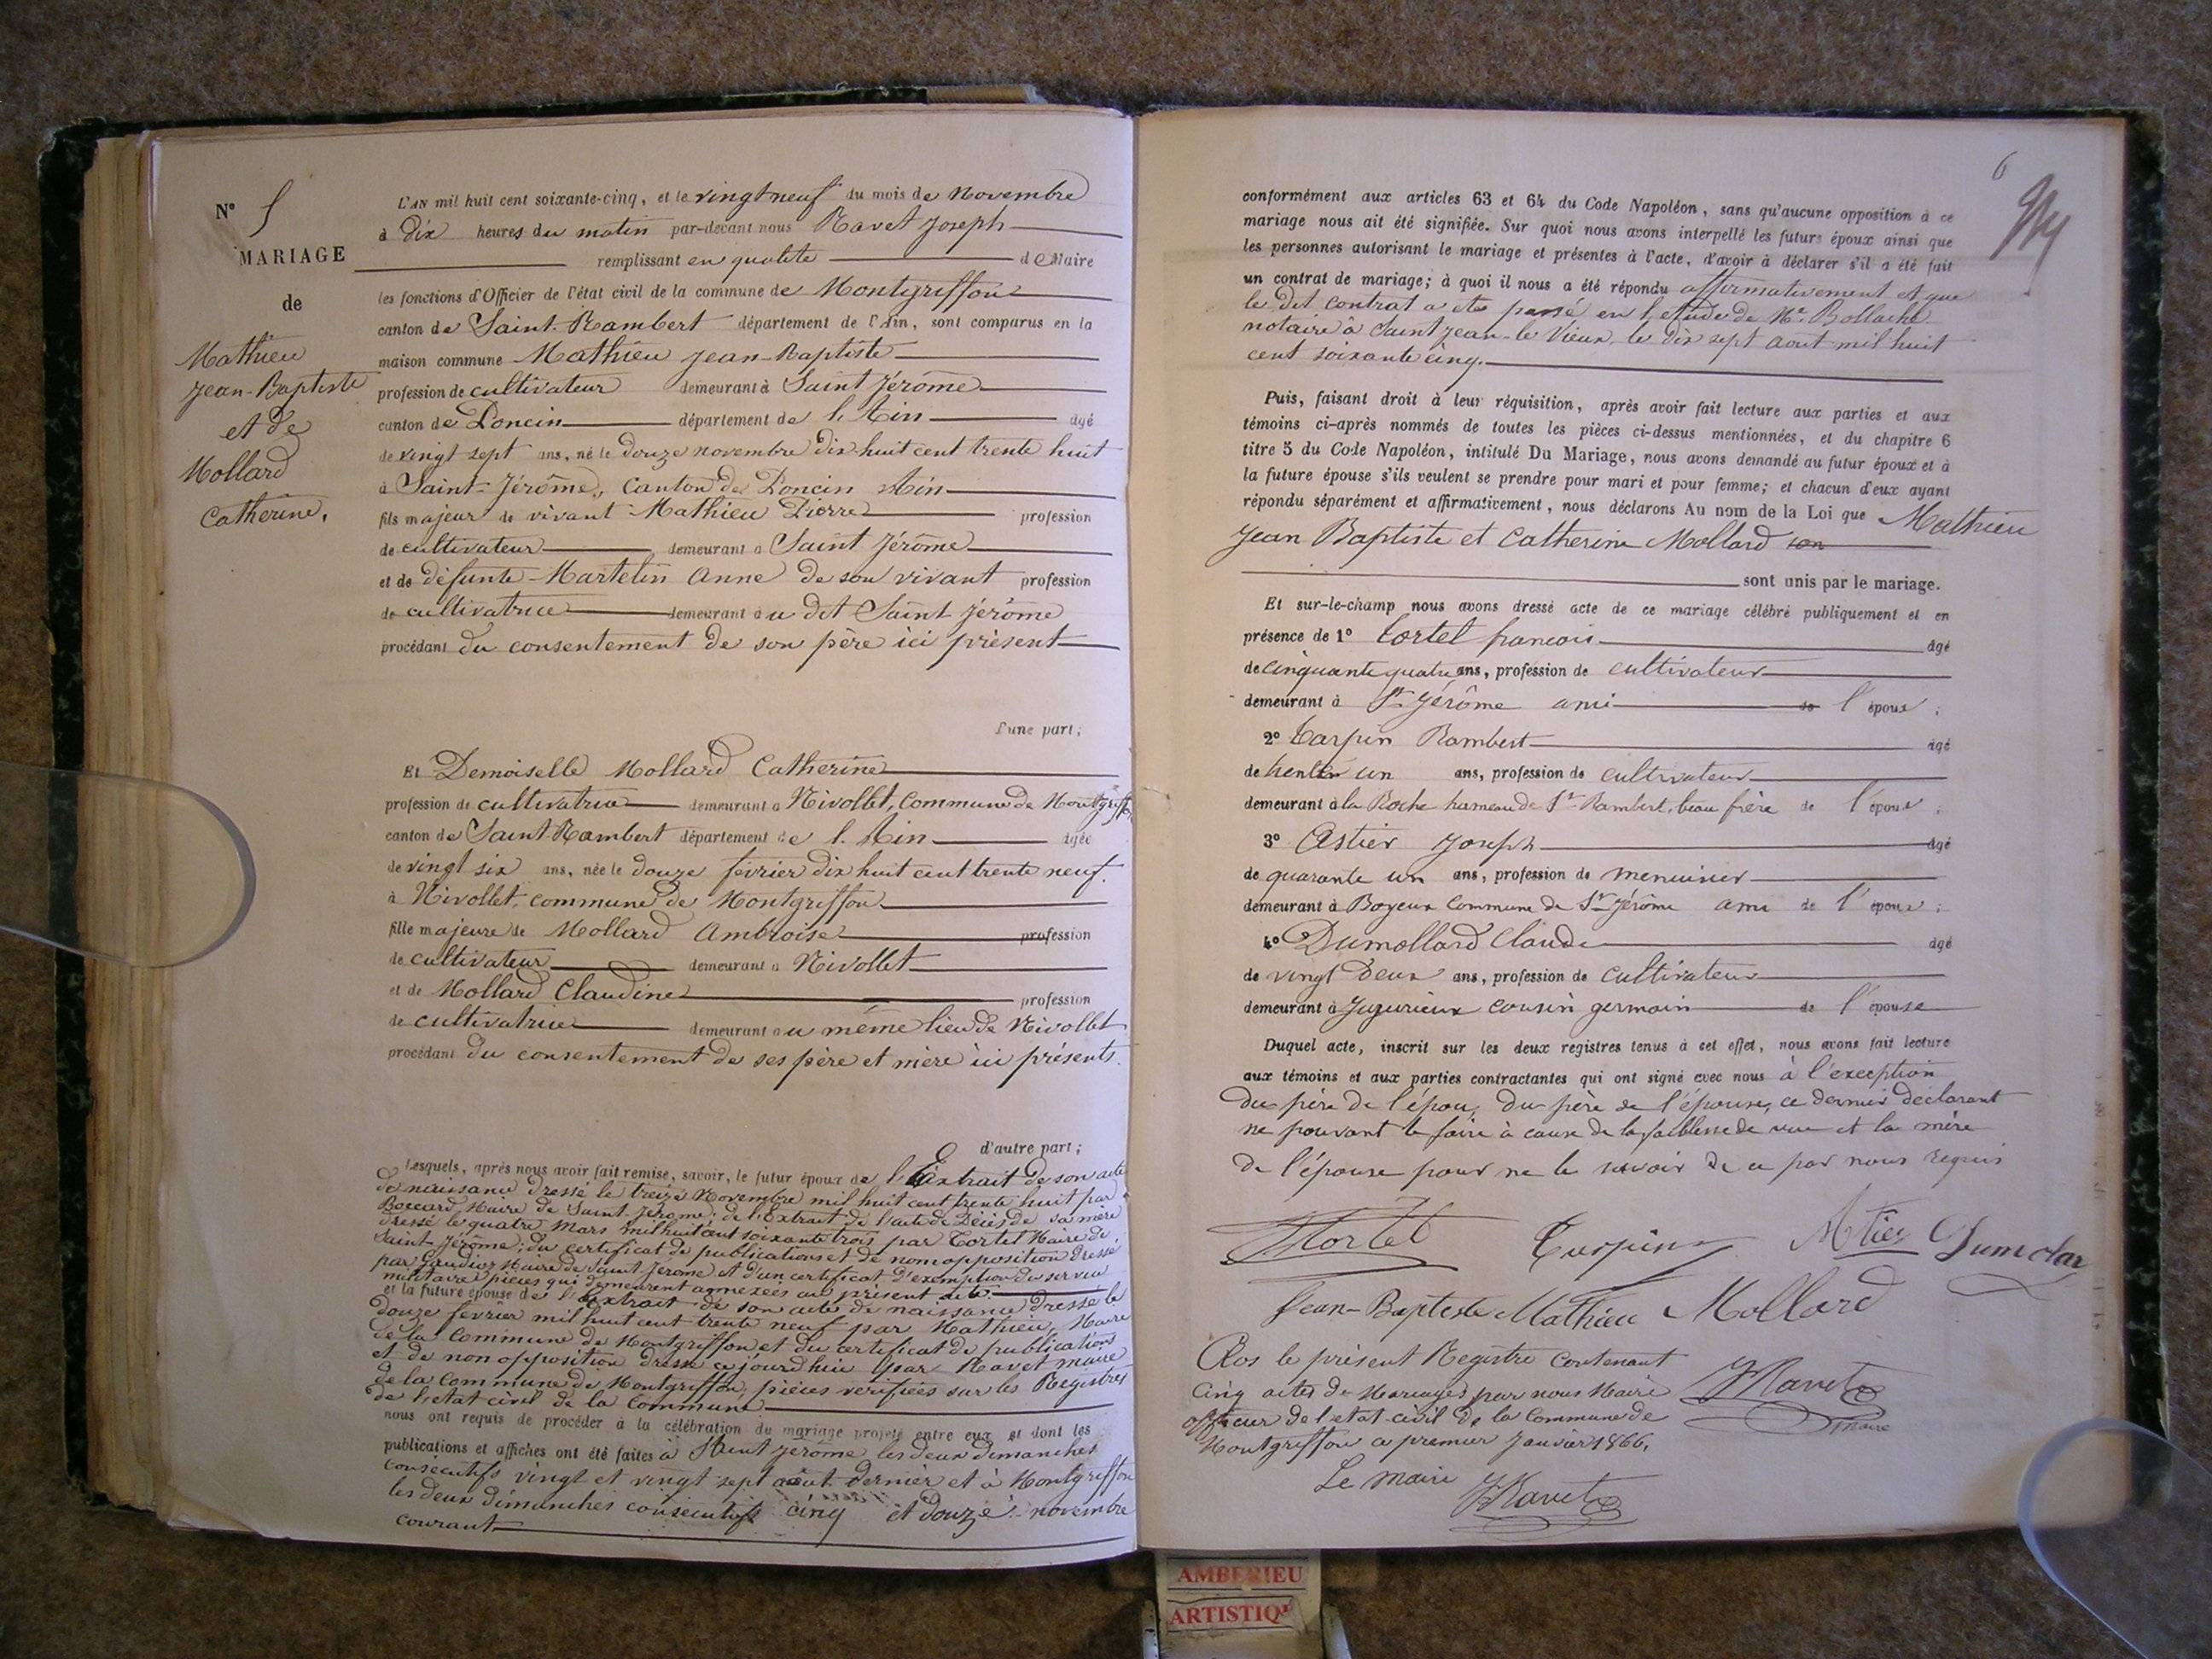 N° 5
MARIAGE
de
Mathieu
Jean-Baptiste
et de
Mollard
Catherine.
L'AN mil huit cent soixante-cinq, et le vingt neuf du mois de Novembre
à dix heures du matin par-devant nous Ravet Joseph
remplissant en qualité de Maire
les fonctions d'Officier de l'état civil de la commune de Montgriffon
canton de Saint-Rambert département de l'Ain, sont comparus en la
maison commune Mathieu Jean-Baptiste
profession de cultivateur demeurant à Saint Jérôme
canton de Poncin département de l'Ain agé
de vingt sept ans, né le douze novembre dix huit cent trente huit
à Saint-Jérôme, Canton de Poncin Ain
fils majeur de vivant Mathieu Pierre profession
de cultivateur demeurant à Saint Jérôme
et de défunte Martelin Anne de son vivant profession
de cultivatrice demeurant au dit Saint Jérôme
procédant du consentement de son père ici présent
d'une part;
Et Demoiselle Mollard Catherine
profession de cultivatrice demeurant à Nivollet, Commune de Montgriffon
canton de Saint-Rambert département de l'Ain agée
de vingt six ans, née le douze février dix huit cent trente neuf.
à Nivollet, commune de Montgriffon
fille majeure de Mollard Ambroise profession
de cultivateur demeurant à Nivollet
et de Mollard Claudine profession
de cultivatrice demeurant au même lieu de Nivollet
procédant du consentement de ses père et mère ici présents.
d'autre part;
Lesquels, après nous avoir fait remise, savoir, le futur époux de l'Extrait de son acte
de naissance dressé le treize Novembre mil huit cent trente huit par
Boccard, Maire de Saint-Jérome; de l'Extrait de l'acte de Décès de sa mère
dressé le quatre Mars mil huit cent soixante trois par Tortel Maire de
Saint-Jérôme; du certificat de publications et de non opposition dressé
par Gaudior Maire de Saint-Jerome et d'un certificat d'exemption du service
militaire pièces qui demeurent annexées au présent acte.
et la future épouse de l'Extrait de son acte de naissance dressé le
douze février mil huit cent trente neuf par Mathieu, Maire
de la Commune de Montgriffon et du certificat de publications
et de non opposition dressé ce jourd'hui par Ravet maire
de la Commune de Montgriffon, pièces vérifiées sur les Registres
de l'etat civil de la Commune
nous ont requis de procéder à la célébration du mariage projeté entre eux et dont les
publications et affiches ont été faites à Saint Jerome les deux dimanches
consécutifs vingt et vingt sept août dernier et à Montgriffon
les deux dimanches consécutifs cinq et douze novembre
courant
6
conformément aux articles 63 et 64 du Code Napoléon, sans qu'aucune opposition à ce
mariage nous ait été signifiée. Sur quoi nous avons interpellé les futurs époux ainsi que
les personnes autorisant le mariage et présentes à l'acte, d'avoir à déclarer s'il a été fait
un contrat de mariage; à quoi il nous a été répondu affirmativement et que
le dit contrat a ete passé en l'etude de Me. Bollache
notaire à Saint Jean-le Vieux, le dix sept aout mil huit
cent soixante cinq.
Puis, faisant droit à leur réquisition, après avoir fait lecture aux parties et aux
témoins ci-après nommés de toutes les pièces ci-dessus mentionnées, et du chapitre 6
titre 5 du Code Napoléon, intitulé Du Mariage, nous avons demandé au futur époux et à
la future épouse s'ils veulent se prendre pour mari et pour femme; et chacun d'eux ayant
répondu séparément et affirmativement, nous déclarons Au nom de la Loi que Mathieu
Jean Baptiste et Catherine Mollard son
sont unis par le mariage.
Et sur-le-champ nous avons dressé acte de ce mariage célébré publiquement et en
présence de 1° Tortel francois agé
de cinquante quatre ans, profession de cultivateur
demeurant à St Jérôme ami de l'époux;
2° Carpin Rambert agé
de trente un ans, profession de cultivateur
demeurant à la Roche hameau de St Rambert, beau frère de l'époux;
3° Astier Joseph agé
de quarante un ans, profession de menuisier
demeurant à Boyeux Commune de St Jérôme ami de l'époux;
4° Dumollard Claude agé
de vingt Deux ans, profession de cultivateur
demeurant à Jujurieux cousin germain de l'épouse
Duquel acte, inscrit sur les deux registres tenus à cet effet, nous avons fait lecture
aux témoins et aux parties contractantes qui ont signé avec nous à l'exception
du père de l'épou, du père de l'épouse, ce dernier déclarant
ne pouvant le faire à cause de la faiblesse de vue et la mère
de l'épouse pour ne le savoir de ce par nous requis
Tortel Astier Dumolar
Jean-Baptiste Mathieu Mollard
Clos le présent Registre contenant
Cinq actes de Mariages par nous Maire
officier de l'etat-civil de la Commune de
Montgriffon ce premier Janvier 1866.
JRavet
maire
Le maire
JRavet
AMBERIEU
ARTISTIQ